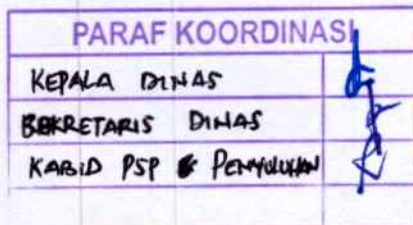 PARAF KOORDINASI
KEPALA DINAS
SEKRETARIS DINAS
KABID PSP & PENYULUHAN